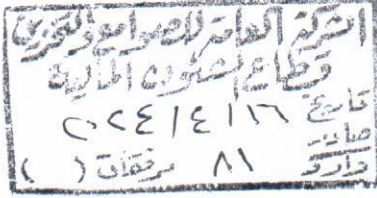 الشركة العامة للصوامع والتخزين
قطاع الشئون المالية
تاريخ ١٦ / ٤ / ٢٠٢٤
صادر
وارد ٨١ مرفقات ( )